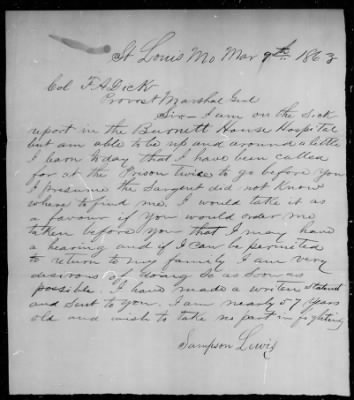 St Louis Mo Mar 9th 1863
Col F A Dick
Provost Marshal Genl
Sir - I am on the Sick
report in the Burnett House Hospital
but am able to be up and around a little
I learn today that I have been called
for at the Prison twice to go before you
I presume the Sargent did not know
where to find me. I would take it as
a favour if you would order me
taken before you that I may have
a hearing and if I can be permited
to return to my family I am very
desirous of doing so as soon as
possible. I have made a writen
and sent to you. I am nearly 57 years
old and wish to take no part in fighting
Sampson Lewis